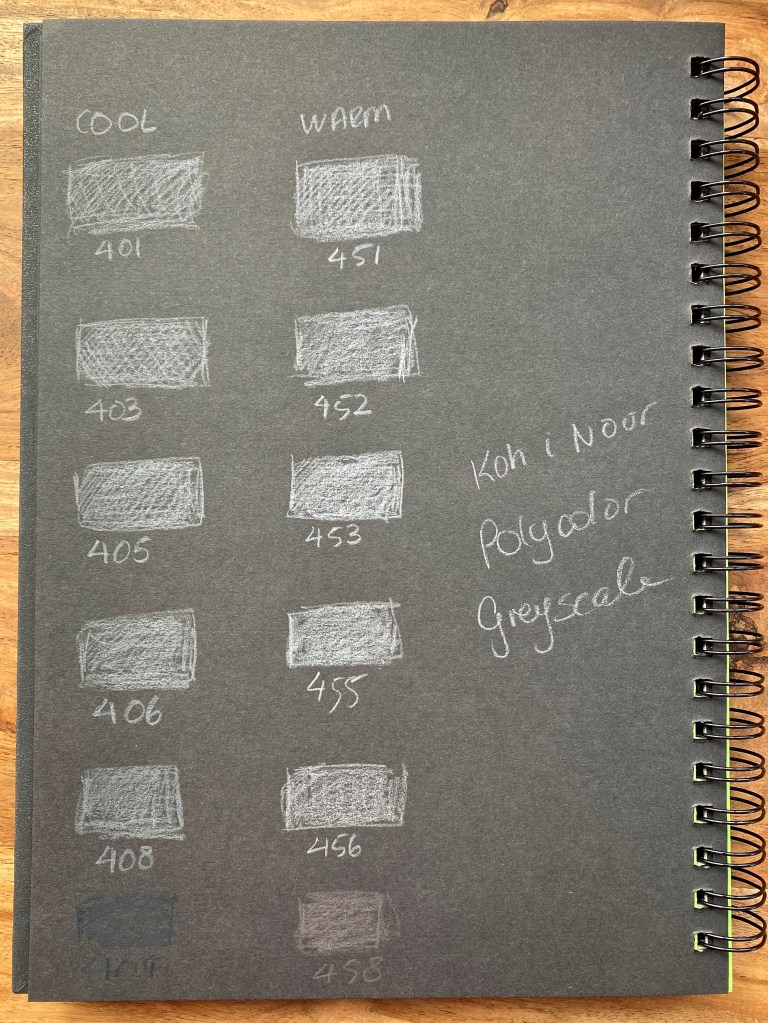 COOL WARM
401 451
403 452
405 453
406 455
408 456
458
Koh i Noor
Polycolor
Greyscale